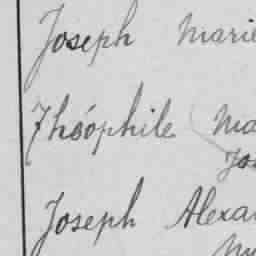 Joseph Marie
Théophile Ma
Jos
Joseph Alexa